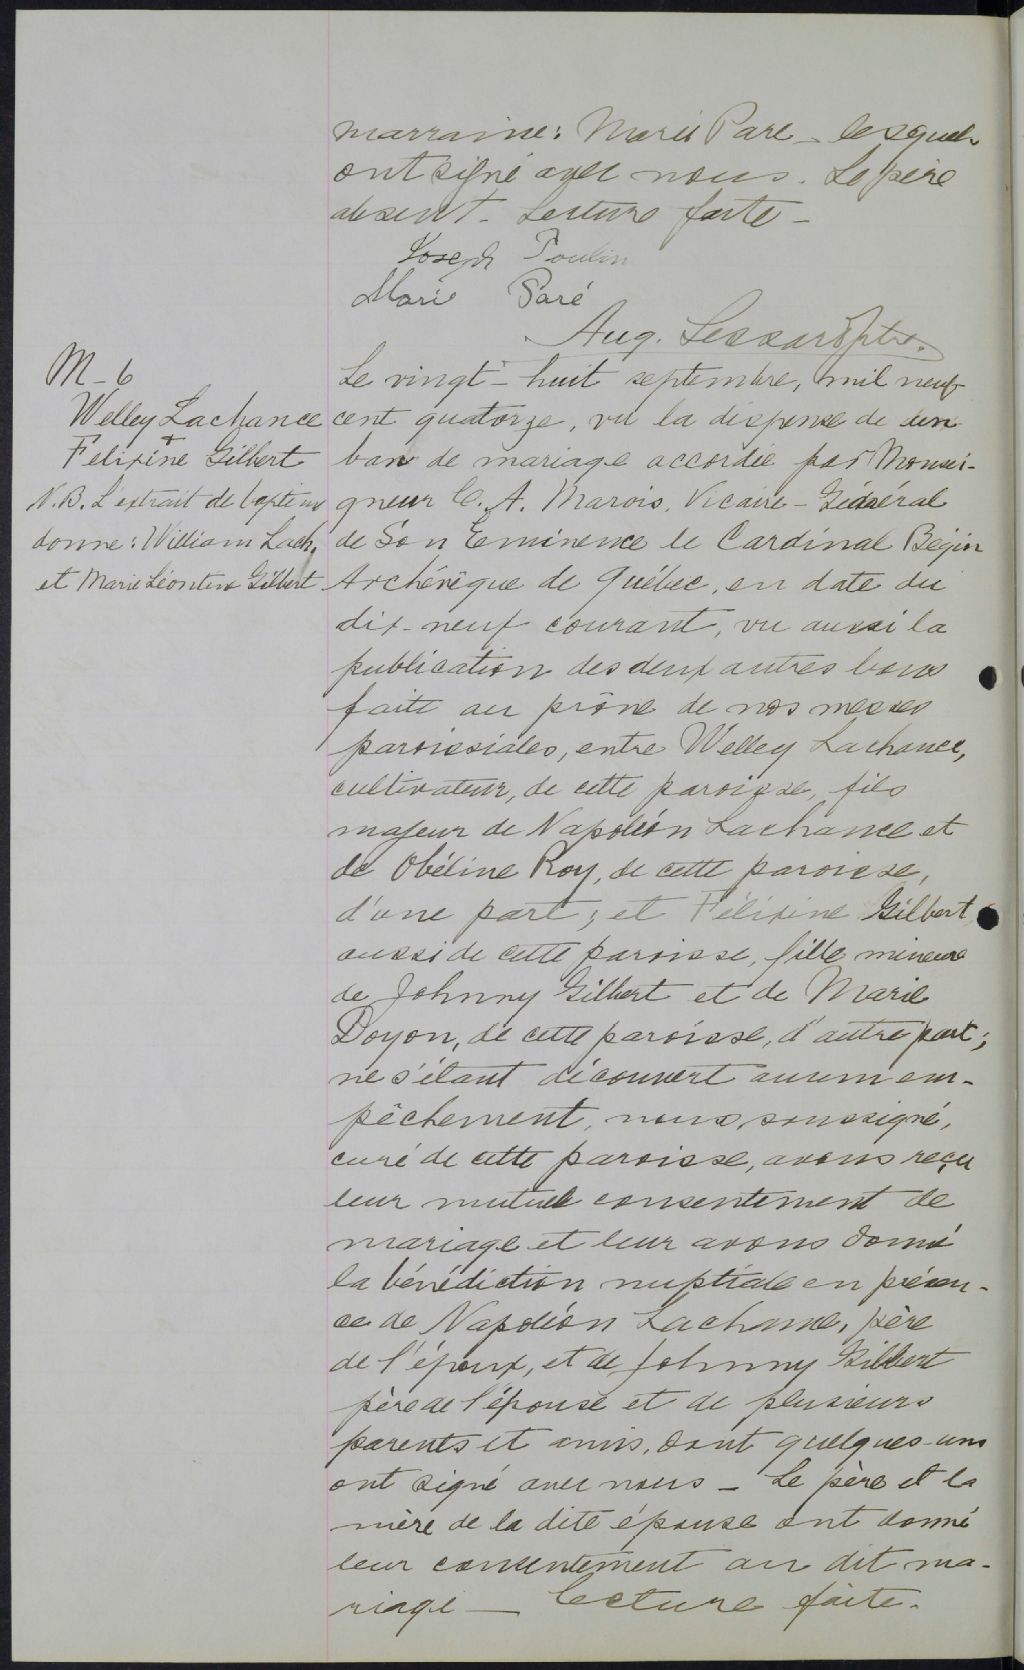 marraine: Marie Paré - lesquels
ont signé avec nous. Le père
absent. Lecture faite -
Joseph Poulin
Marie Paré
Aug. Lessard Ptre.
M - 6
Welley Lachance
+
Felixine Gilbert
N.B. L'extrait de baptême
donne: William Lach.
et Marie Léontine Gilbert
Le vingt-huit septembre, mil neuf
cent quatorze, vu la dispense de un
ban de mariage accordée par Monsei-
gneur C. A. Marois, Vicaire-Général
de Son Eminence le Cardinal Bégin
Archévêque de Québec, en date du
dix-neuf courant, vu aussi la
publication des deux autres bans
faite au prône de nos messes
paroissiales, entre Welley Lachance,
cultivateur, de cette paroisse, fils
majeur de Napoléon Lachance et
de Obéline Roy, de cette paroisse,
d'une part; et Félixine Gilbert,
aussi de cette paroisse, fille mineure
de Johnny Gilbert et de Marie
Doyon, de cette paroisse, d'autre part;
ne s'étant découvert aucun em-
pêchement, nous, soussigné,
curé de cette paroisse, avons reçu
leur mutuel consentement de
mariage et leur avons donné
la bénédiction nuptiale en présen-
ce de Napoléon Lachance, père
de l'époux, et de Johnny Gilbert
père de l'épouse et de plusieurs
parents et amis, dont quelques-uns
ont signé avec nous - Le père et la
mère de la dite épouse ont donné
leur consentement au dit ma-
riage - Lecture faite.